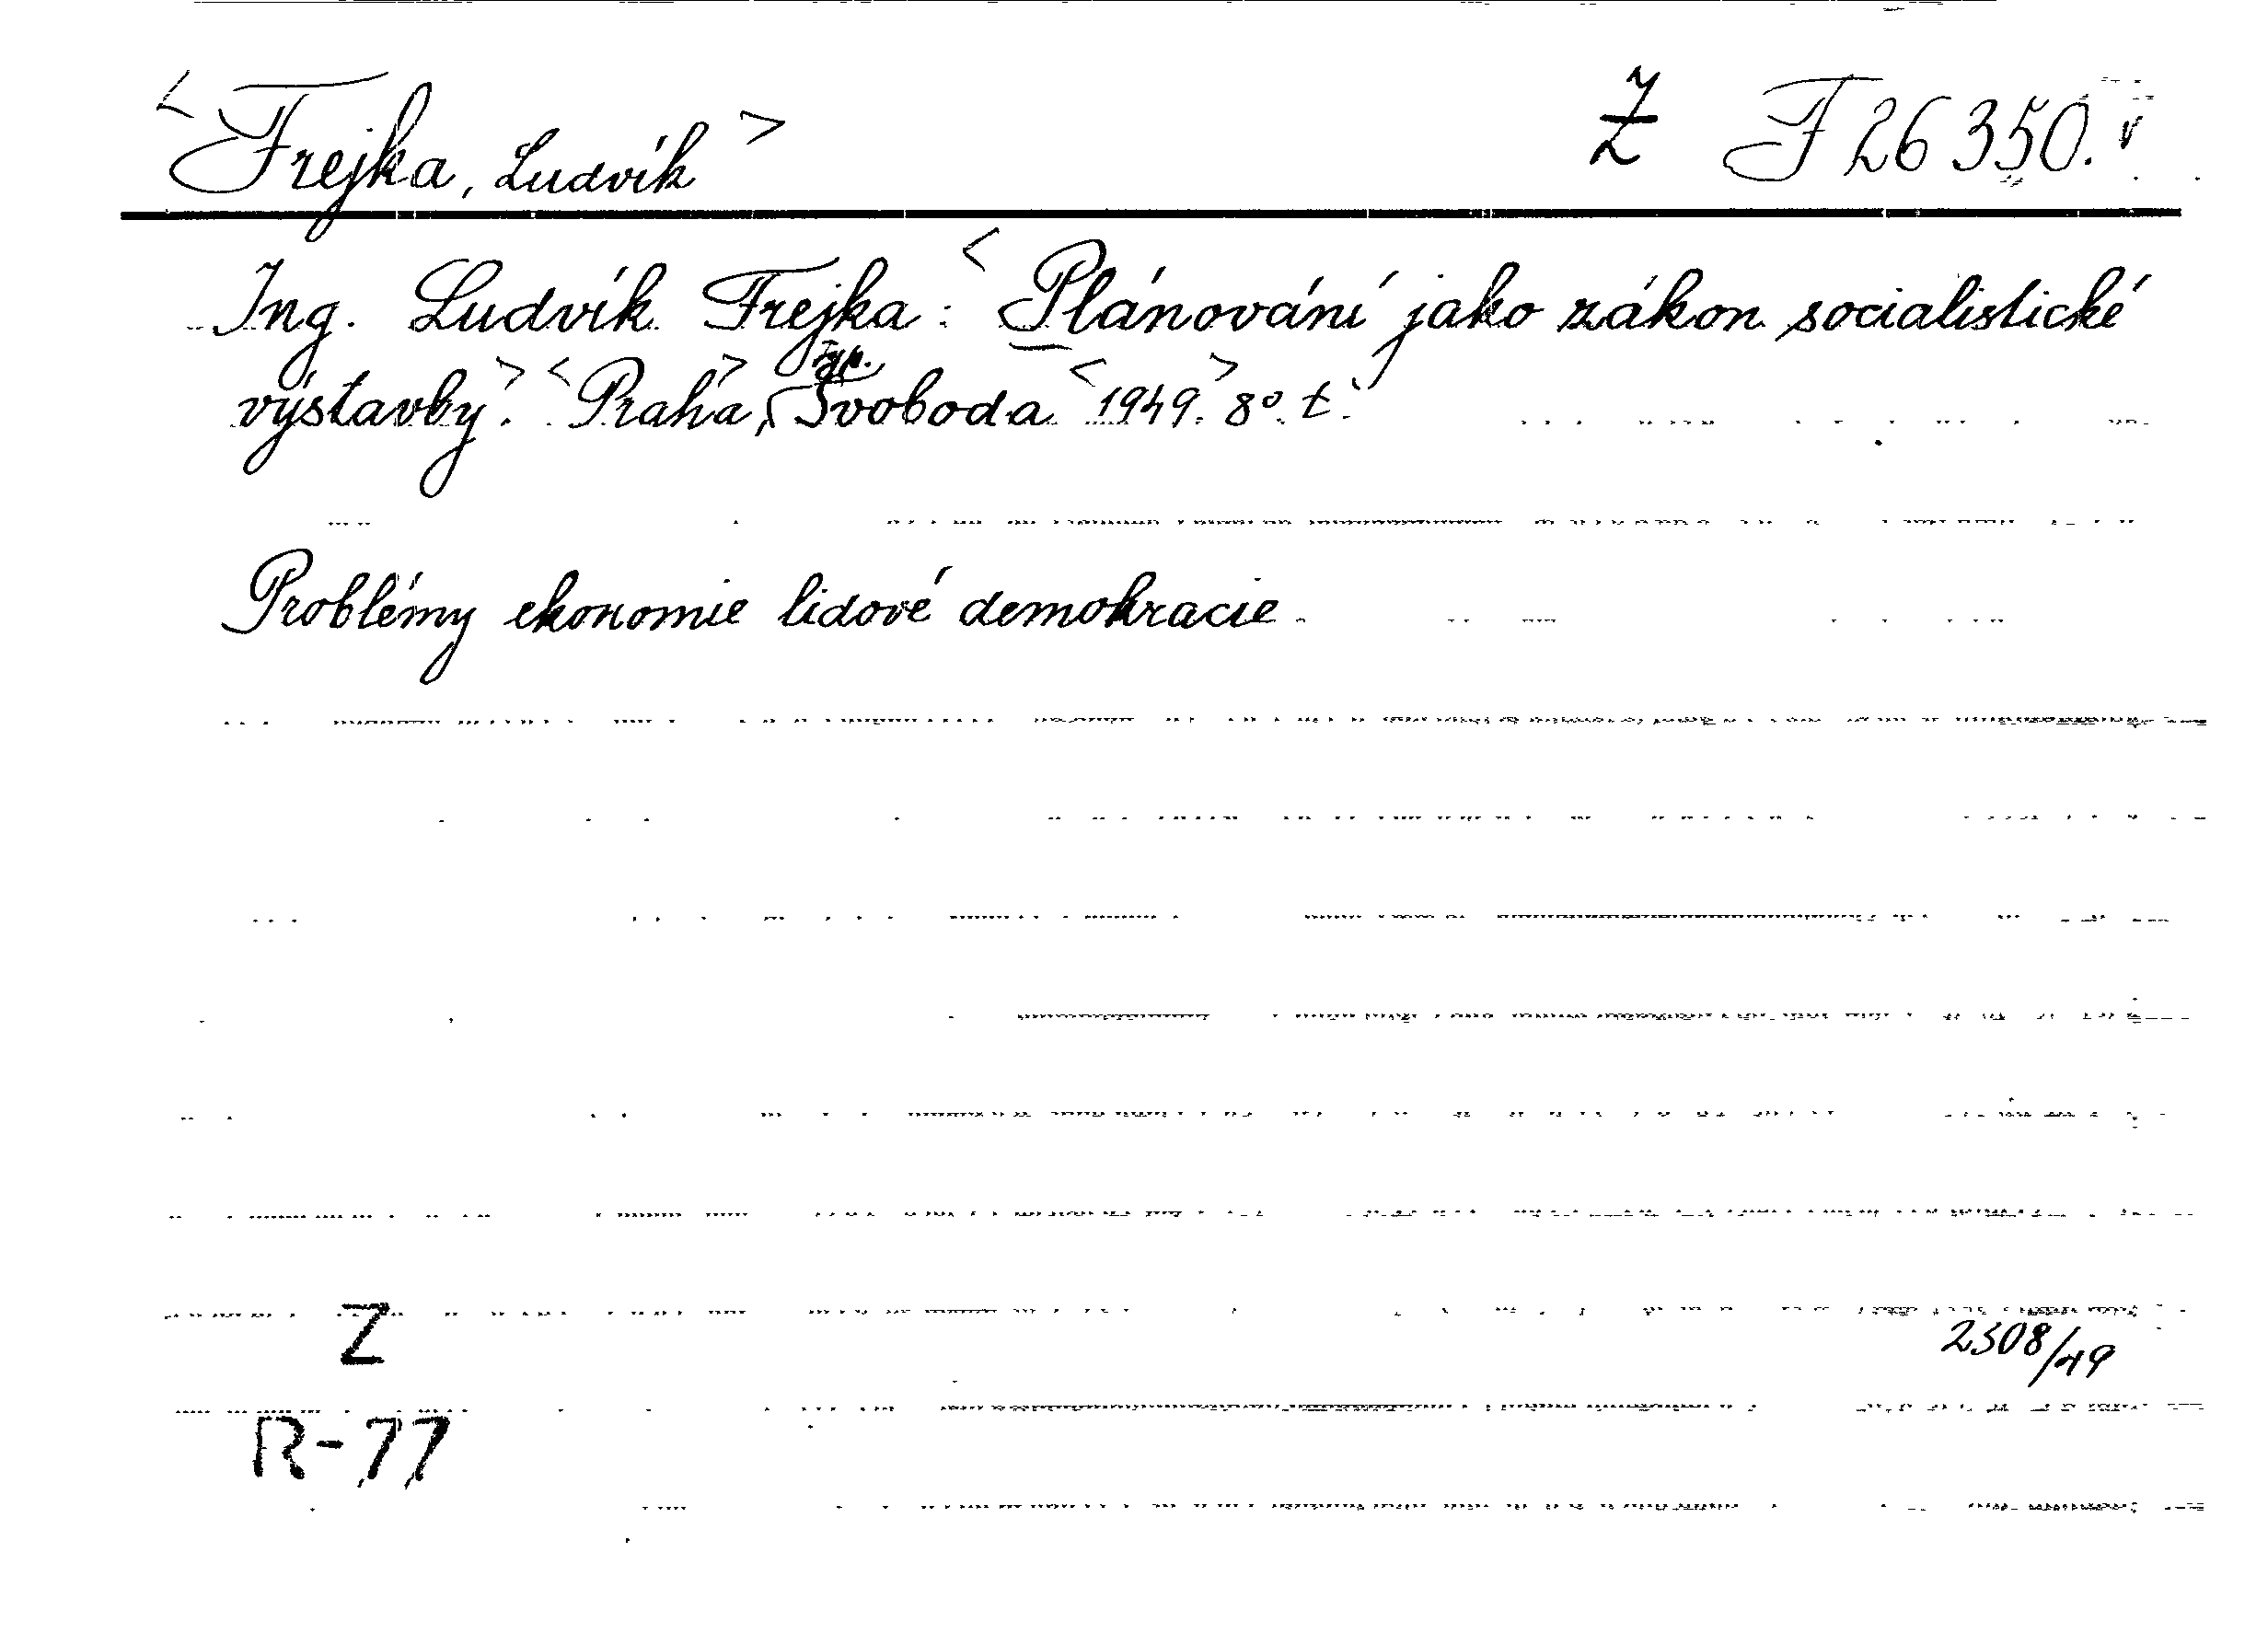 <Frejka, Ludvík> Ž F 26350.
Ing. Ludvík Frejka: <Plánování jako zákon socialistické
typ.
výstavby>. <Praha>, Svoboda <1949>. 8°. t.
Problémy ekonomie lidové demokracie.
Z
2308/49
R-77